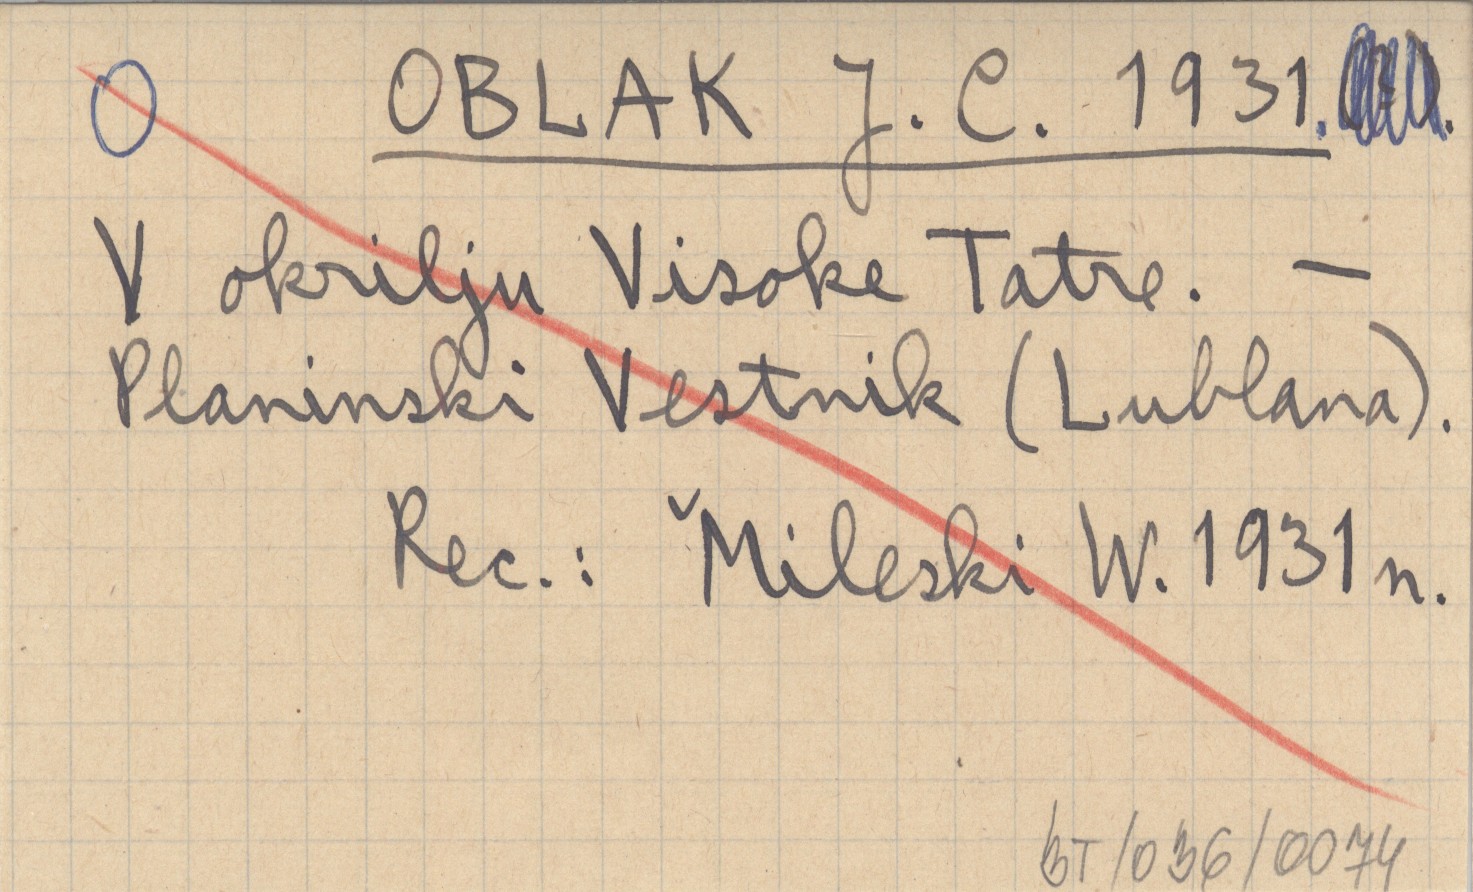 O OBLAK J. C. 1931.
V okrilju Visoke Tatre. —
Planinski Vestnik (Lublana).
Rec.: ˇMileski W. 1931 n.
BT/036/0074